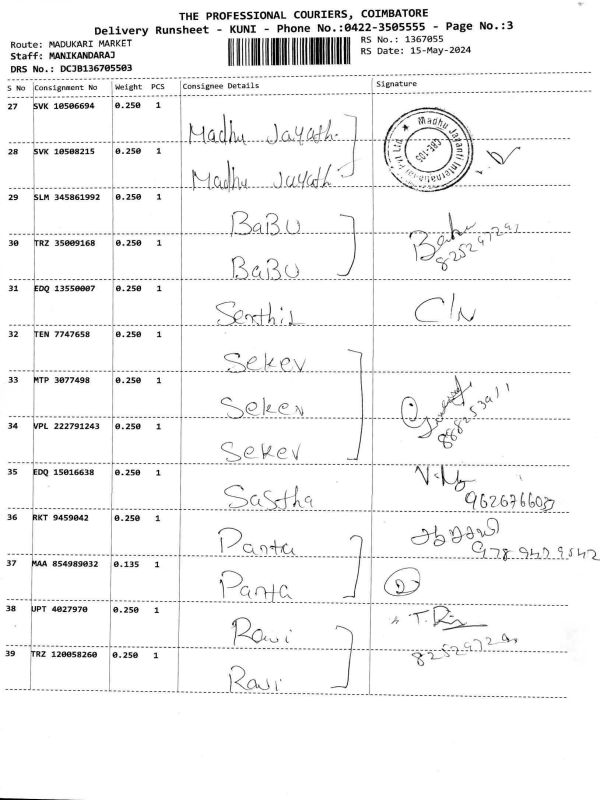 THE PROFESSIONAL COURIERS, COIMBATORE
Delivery Runsheet - KUNI - Phone No.:0422-3505555 - Page No.:3
Route: MADUKARI MARKET
RS No.: 1367055
Staff: MANIKANDARAJ
RS Date: 15-May-2024
DRS No.: DCJB136705503
S No Consignment No Weight PCS Consignee Details Signature
27 SVK 10506694 0.250 1 Madhu Jayath
28 SVK 10508215 0.250 1 Madhu Jayath
Madhu Jayanti International Pvt Ltd
CBE-105
29 SLM 345861992 0.250 1 BaBU
30 TRZ 35009168 0.250 1 BaBU
31 EDQ 13550007 0.250 1 Senthil C/N
32 TEN 7747658 0.250 1 Seker
33 MTP 3077498 0.250 1 Seker
34 VPL 222791243 0.250 1 Seker
35 EDQ 15016638 0.250 1 Sastha
36 RKT 9459042 0.250 1 Panta
37 MAA 854989032 0.135 1 Panta
38 UPT 4027970 0.250 1 Ravi
39 TRZ 120058260 0.250 1 Ravi